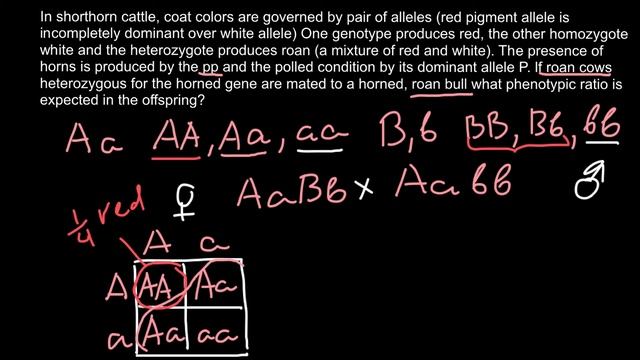 In shorthorn cattle, coat colors are governed by pair of alleles (red pigment allele is
incompletely dominant over white allele) One genotype produces red, the other homozygote
white and the heterozygote produces roan (a mixture of red and white). The presence of
horns is produced by the pp and the polled condition by its dominant allele P. If roan cows
heterozygous for the horned gene are mated to a horned, roan bull what phenotypic ratio is
expected in the offspring?
Aa AA, Aa, aa B, b BB, Bb, bb
1/4 red ♀ AaBb x Aabb ♂
A a
A AA Aa
a Aa aa